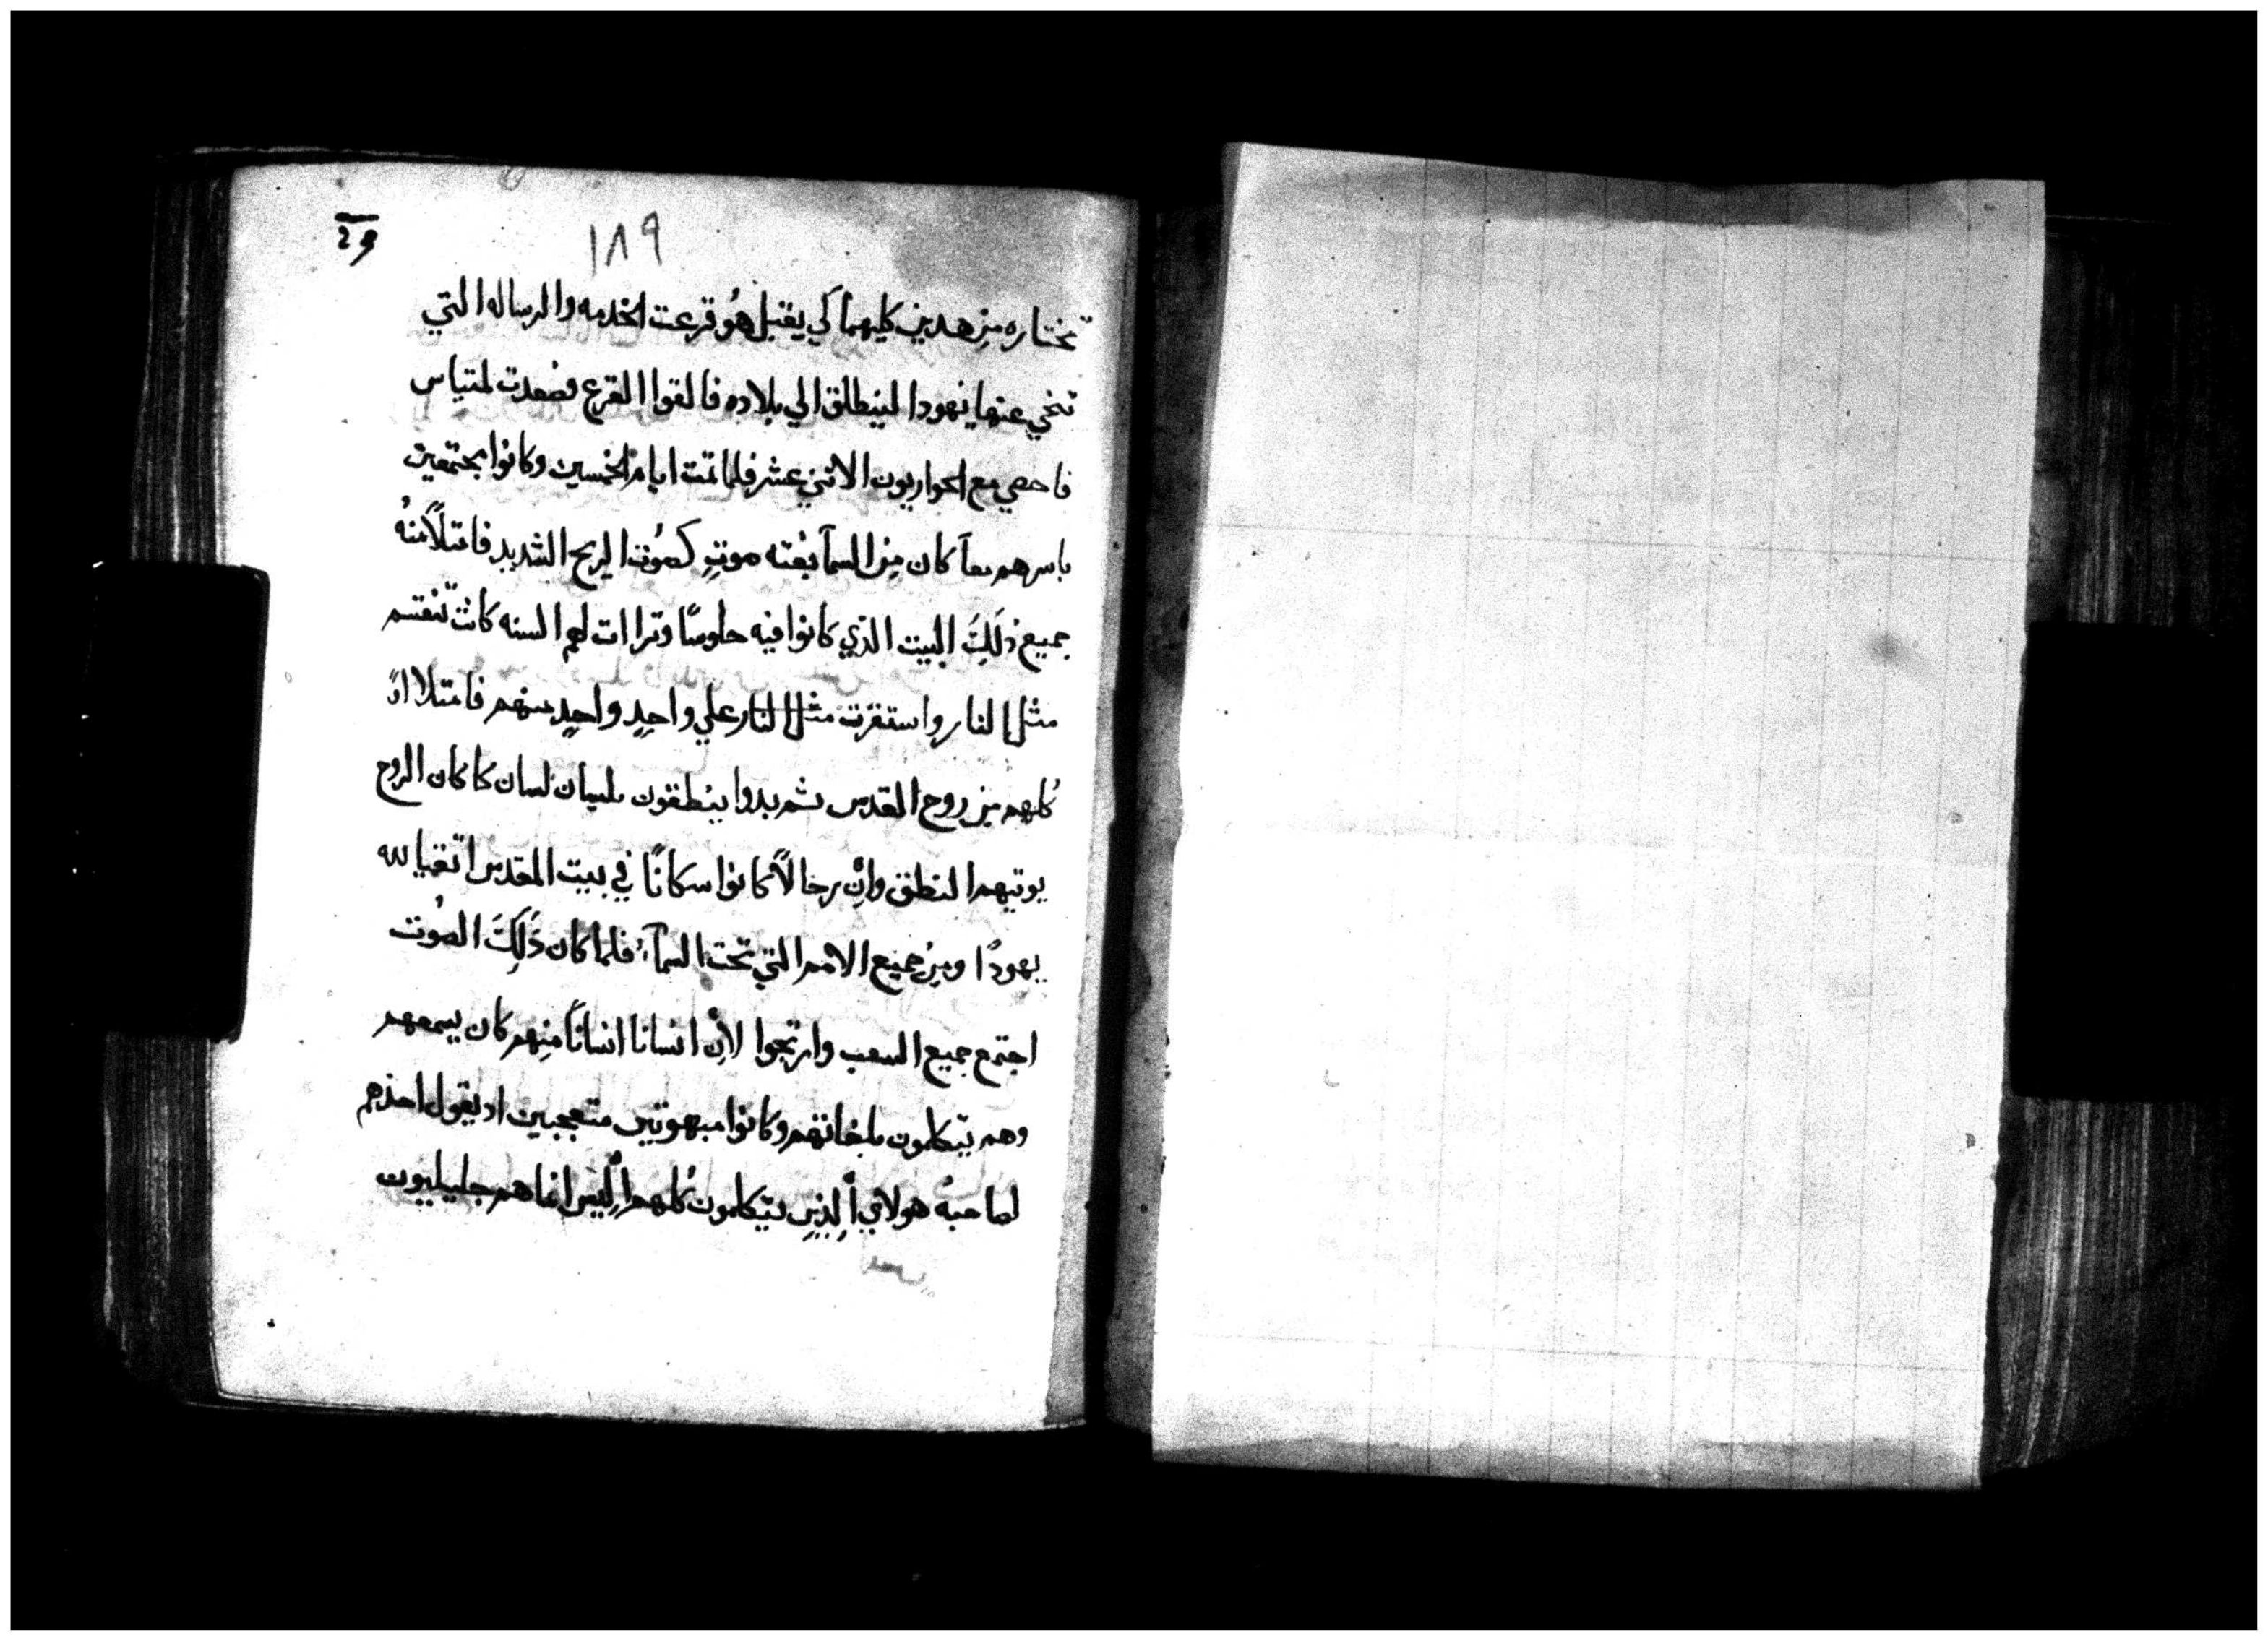 ١٨٩
تختاره مِن هدين كليهما كي يقبل هُو قرعت الخدمه والرساله التي
تنخي عنها يهودا لينطلق الي بلاده فالقوا القرع فصعدت لمتياس
فاحصي مع الحواريون الاثني عشر فلما تمت ايام الخمسين وكانوا مجتمعين
باسرهم معاً كان مِن السمآ بغته صوتِ كصُوت الريح الشديد فامتلأ منهُ
جميع ذلَكَ البيت الذي كانوا فيه جلوسًا وتراات لهم السنه كانت تنقسم
مثل النار واستقرت مثل النار علي واحِدٍ واحِدٍ منهم فامتلااوً
كُلهم مِن روح القدس ثم بدوا ينطقون بلسان لسان كما كان الروح
يوتيهم النطق وإنَّ رجالاً كانوا سكانًا في بيت المقدس اتقيا لله
يهودًا ومِن جميع الامم التي تحت السمآء فلما كان ذَلِكَ الصُوت
اجتمع جميع السعب وارتجوا لأِن انسانا انساناً مِنهم كان يسمعهم
وهم يتكلمون بلغاتهم وكانوا مبهوتين متعجبين اد يقول احدهم
لصاحبهُ هولاي أَلِذين يتكلمون كُلهم أَلِيس انما هم جليليون